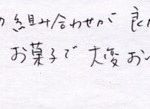 の組み合わせが良
お菓子で大変お